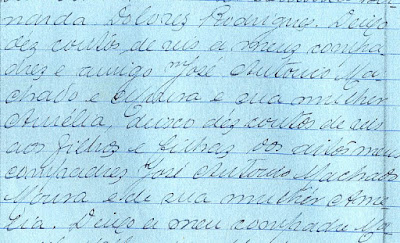 nanda Dolores Rodrigues. Deixo
dez contos de reis a meus compa-
dres e amigo José Antonio Ma-
chado e Moura e sua mulher
Amélia, deixo dez contos de reis
aos filhos e filhas dos ditos meus
compadres José Antonio Machado
Moura e de sua mulher Amé-
lia. Deixo a meu compadre Ma-